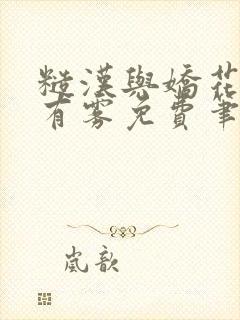 糙漢與嬌花
有雾免費筆
嵐歆